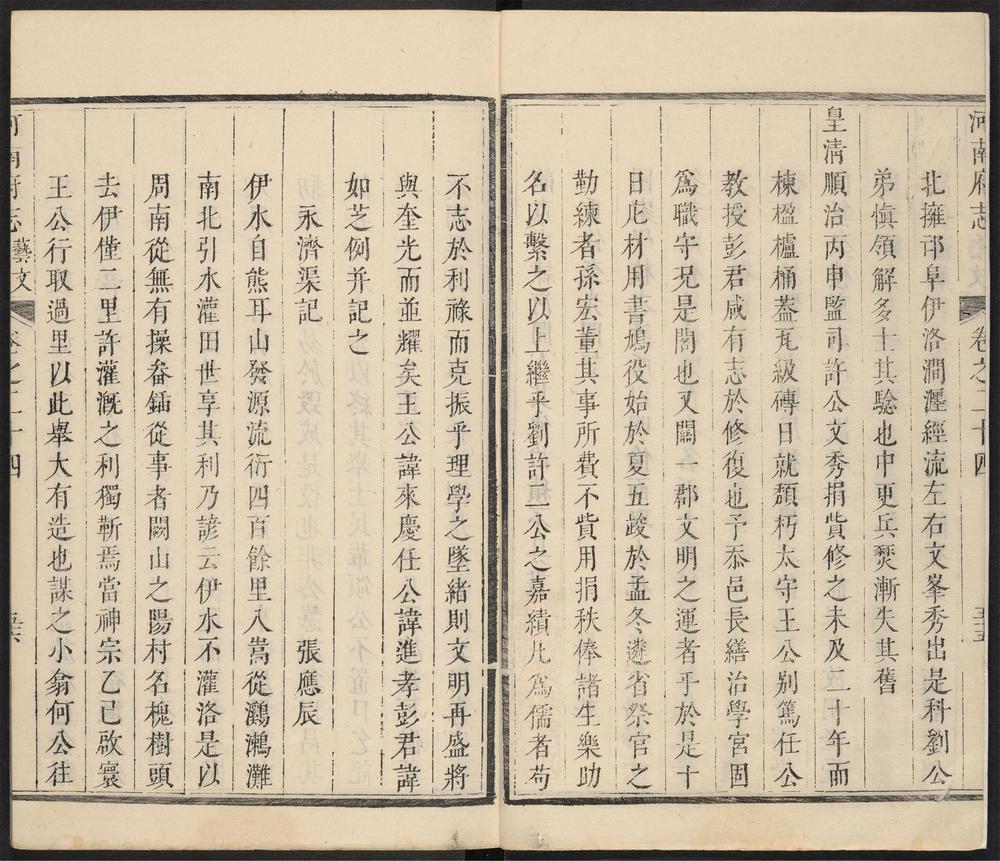 河南府志 卷之二十四 五十五
北擁邙阜伊洛澗瀍經流左右文峯秀出是科劉公
弟愼領解多士其騐也中更兵燹漸失其舊
皇清順治丙申監司許公文秀捐貲修之未及二十年而
棟楹櫨桷蓋瓦級磚日就頽朽太守王公别篤任公
教授彭君咸有志於修復也予忝邑長繕治學宮固
爲職守况是閣也又關一郡文明之運者乎於是十
日庀材用書鳩役始於夏五竣於孟冬遴省祭官之
勤練者孫宏董其事所費不貲用捐秩俸諸生樂助
名以繫之以上繼乎劉許二公之嘉績凡爲儒者苟
不志於利祿而克振乎理學之墜緒則文明再盛將
與奎光而並耀矣王公諱來慶任公諱進孝彭君諱
如芝例并記之
永濟渠記 張應辰
伊水自熊耳山發源流衍四百餘里入嵩從鸂鶒灘
南北引水灌田世享其利乃諺云伊水不灌洛是以
周南從無有操畚鍤從事者闕山之陽村名槐樹頭
去伊僅二里許灌漑之利獨靳焉當神宗乙巳啟寰
王公行取過里以此舉大有造也謀之小翁何公往
河南府志 藝文 卷之二十四